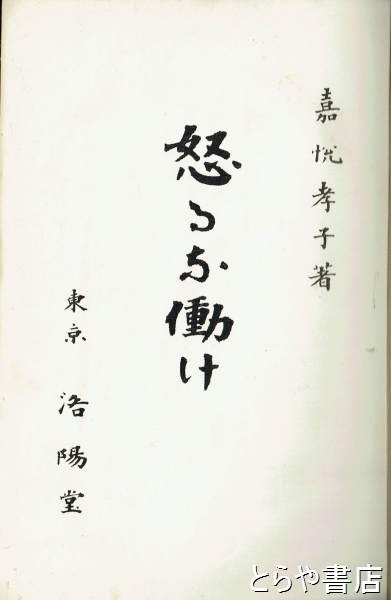 嘉悦孝子著
怒るな働け
東京 洛陽堂
とらや書店